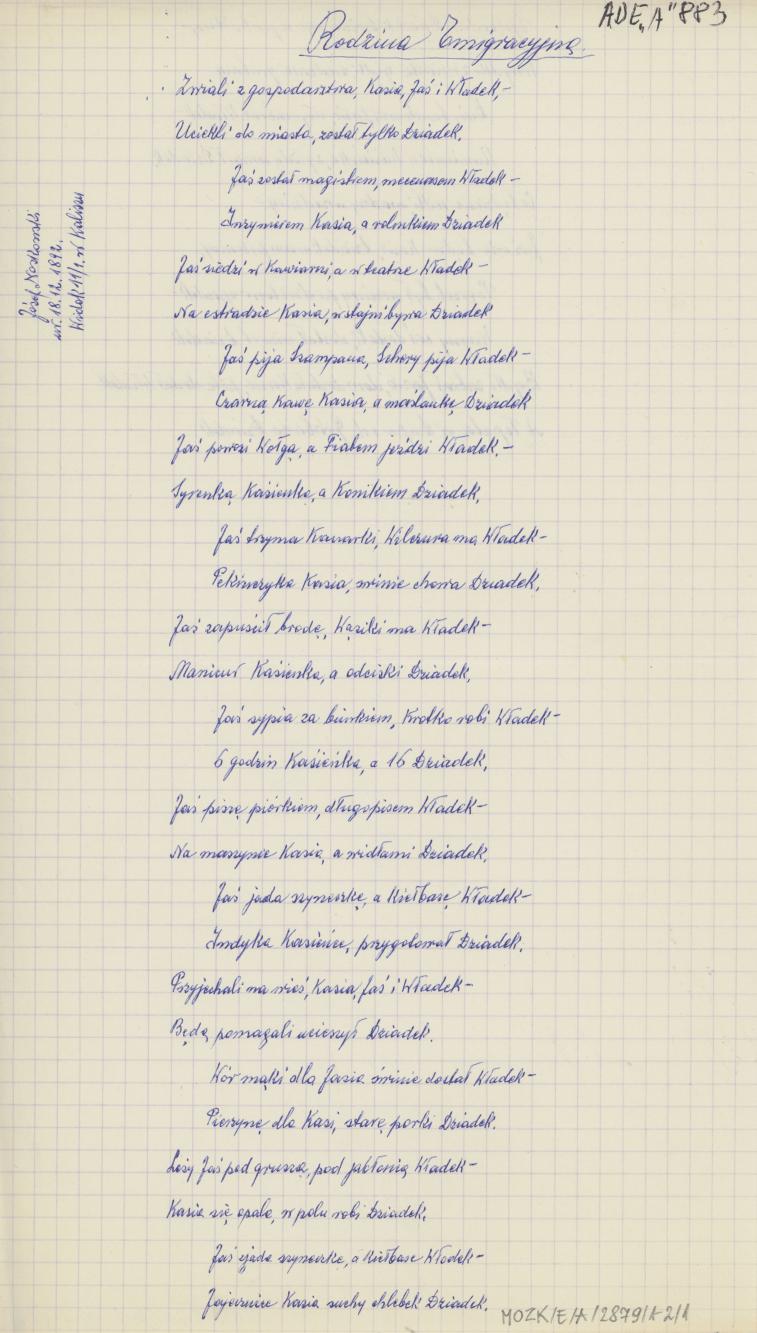 ADE „A" 883
Rodzina Emigracyjna.
Zwiali z gospodarstwa, Kasia, Jaś i Władek,-
Uciekli do miasta, został tylko Dziadek.
Jaś został magistrem, mecenasem Władek-
Inżynierem Kasia, a rolnikiem Dziadek
Jaś siedzi w Kawiarni, a w teatrze Władek-
Na estradzie Kasia, w stajni bywa Dziadek
Jaś pija Szampana, Scherry pija Władek-
Czarną Kawę Kasia, a maślankę Dziadek
Jaś powozi Wołgą, a Fiatem jeździ Władek.-
Syrenką Kasieńka, a Konikiem Dziadek,
Jaś trzyma Kanarki, Wilczura ma Władek-
Pekińczyka Kasia, świnie chowa Dziadek,
Jaś zapuścił brodę, Wąsiki ma Władek-
Manicur Kasieńka, a odciski Dziadek,
Jaś sypia za biurkiem, Krótko robi Władek-
6 godzin Kasieńka, a 16 Dziadek,
Jaś piszę piórkiem, długopisem Władek-
Na maszynie Kasia, a widłami Dziadek.
Jaś jada szyneczkę, a Kiełbasę Władek-
Indyka Kasieńce, przygotował Dziadek.
Przyjechali na wieś, Kasia, Jaś i Władek-
Będą pomagali ucieszył Dziadek.
Wór mąki dla Jasia świnie dostał Władek-
Pierzynę dla Kasi, starę portki Dziadek.
Leży Jaś pod gruszą, pod jabłonią Władek-
Kasia się opala, w polu robi Dziadek,
Jaś zjada szyneczkę, a Kiełbase Władek-
Jajecznice Kasia suchy chlebek Dziadek.
Józef Noskowski
ur. 18.12.1892.
Widok 11/1. w Kaliszu
MOZK/E/A/2879/1-2/1